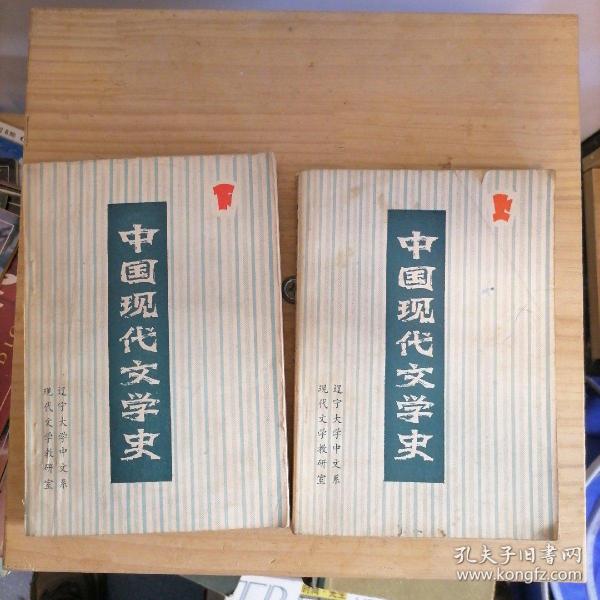 下
中国现代文学史
辽宁大学中文系
现代文学教研室
上
中国现代文学史
辽宁大学中文系
现代文学教研室
孔夫子旧书网
www.kongfz.com